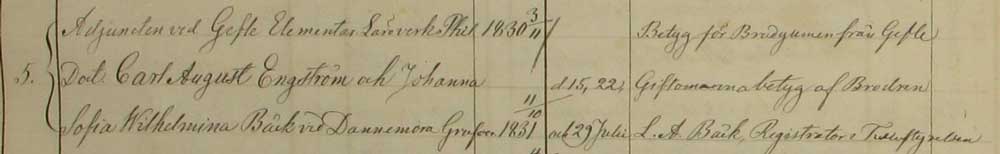 Adjuncten ved Gefle Elementar Läroverk Phil. 1830 3/11 Betyg för Brudgumen från Gefle
5. Doct. Carl August Engström och Johanna d 15, 22, Giftomanna betyg af Brodren
Sofia Wilhelmina Bäck vid Dannemora Grufvor 1831 11/10 och 29 Julii L. A. Bäck, Registrator i